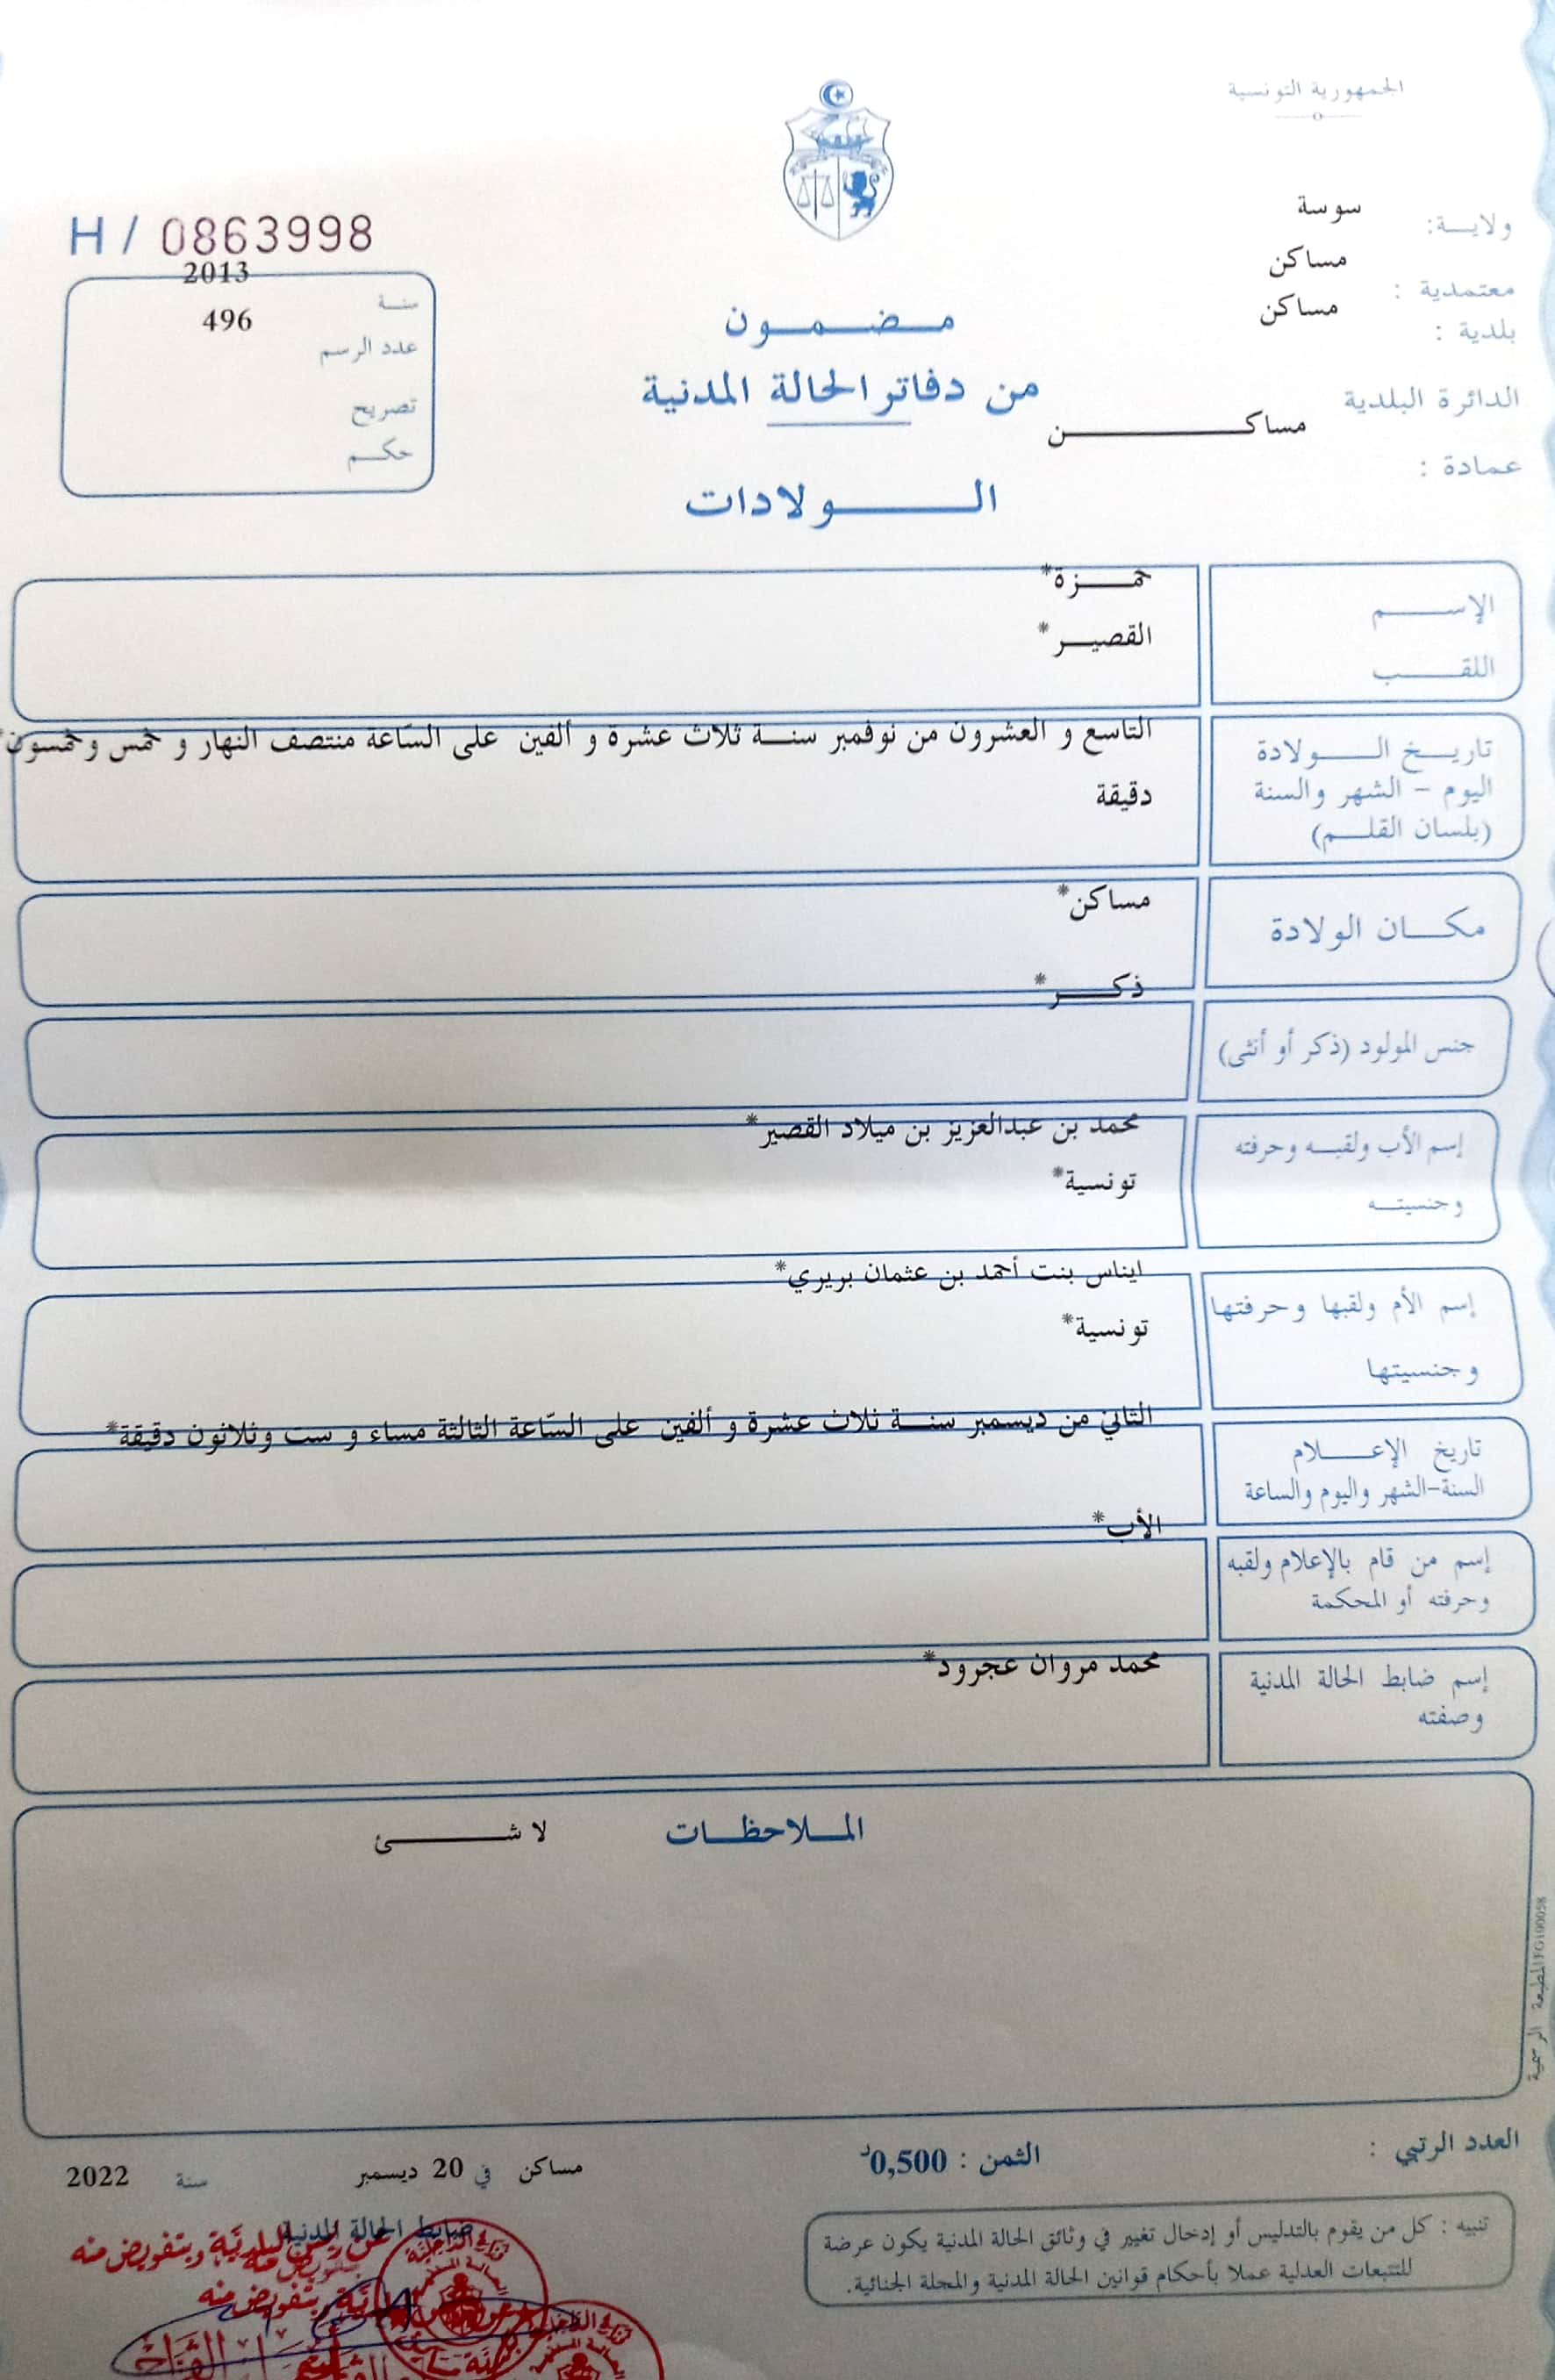 الجمهورية التونسية
ولايـــة: سوسة
معتمدية : مساكن
بلدية : مساكن
الدائرة البلدية
مساكــــــــن
عمادة :
H / 0863998
2013
سنـــة
496
عدد الرسم
تصريح
حكـــم
مـــضـــمـــون
من دفاتر الحالة المدنية
الــــــولادات
الإســــم
حمــــزة*
اللقــــب
القصيـــر*
تاريـــخ الــــولادة
اليوم – الشهر والسنة
(بلسان القلـــم)
التاسع و العشرون من نوفمبر سنـــة ثلاث عشرة و ألفين على السّاعة منتصف النهار و خمس وخمسون*
دقيقة
مكـــان الولادة
مساكن*
جنس المولود (ذكر أو أنثى)
ذكـــر*
إسم الأب ولقبـــه وحرفته
وجنسيتـــه
محمد بن عبدالعزيز بن ميلاد القصير*
تونسية*
إسم الأم ولقبها وحرفتها
وجنسيتها
ايناس بنت أحمد بن عثمان بريري*
تونسية*
تاريخ الإعـــــلام
السنة-الشهر واليوم والساعة
الثاني من ديسمبر سنـــة ثلاث عشرة و ألفين على السّاعة الثالثة مساء و ست وثلاثون دقيقة*
إسم من قام بالإعلام ولقبه
وحرفته أو المحكمة
الأب*
إسم ضابط الحالة المدنية
وصفته
محمد مروان عجرود*
المـــلاحظـــات
لا شـــــئ
المطبعة الرسمية FG100058
العدد الرتبي :
الثمن : 0,500د
مساكن في 20 ديسمبر سنة 2022
تنبيه : كل من يقوم بالتدليس أو إدخال تغيير في وثائق الحالة المدنية يكون عرضة
للتتبعات العدلية عملا بأحكام قوانين الحالة المدنية والمجلة الجنائية.
ضابط الحالة المدنية
عن رئيس البلدية وبتفويض منه
وبتفويض منه